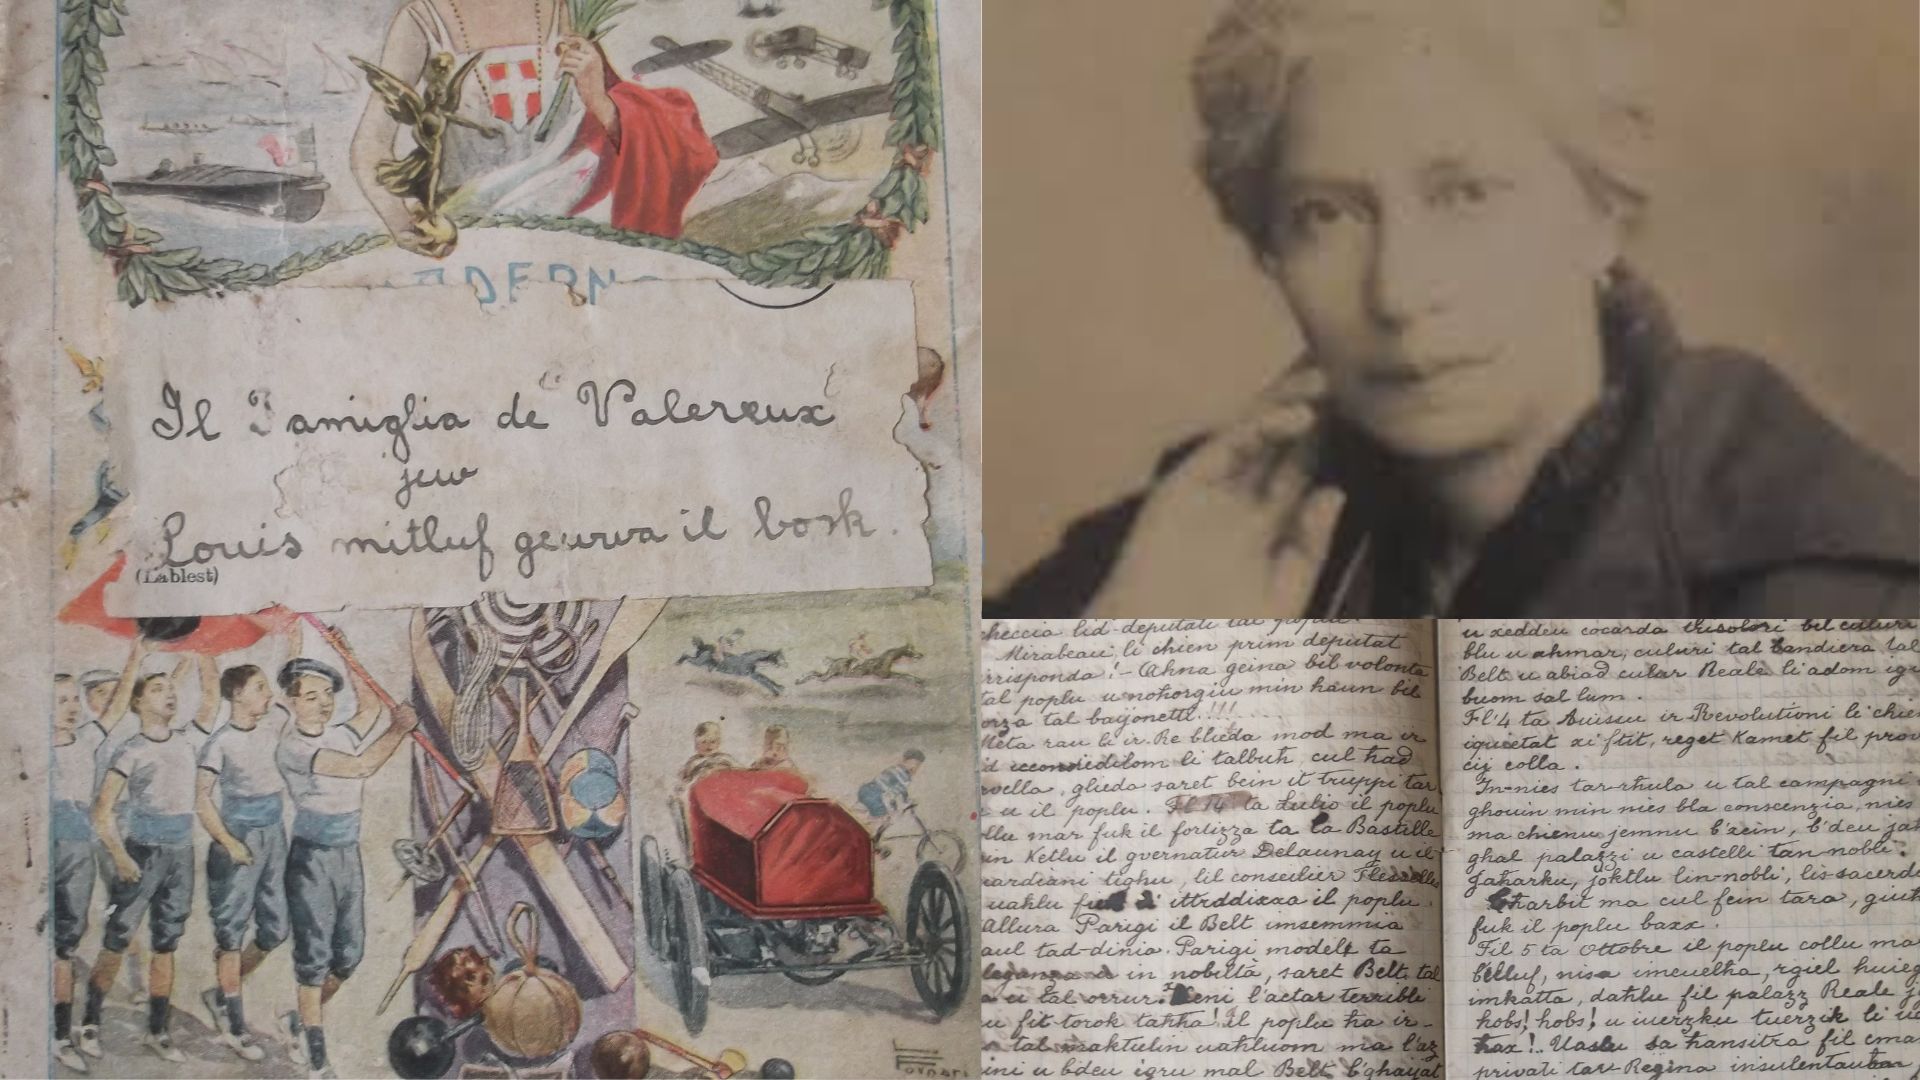 ADERN
Il Famiglia de Valereux
jew
Louis mitluf geuwa il bosk.
(Lablest)
checcia lid-deputati tal
Mirabeau li chien prim deputat
rrisponda! - Ahna geina bil volonta
tal poplu u nohorgiu min haun bil
orza tal bajjonetti.!!!
Meta rau li ir-Re blieda mod ma ir
li talbuh, cul had
vella, glieda saret bein it truppi tar
u il poplu. Fl 14 ta Lulio il poplu
llu mar fuk il fortizza ta la Bastille
un Ketlu il gvernatur Delaunay u il
uardiani tighu, lil conseilier Flesselles
uahlu ittraddixxa il poplu.
Allura Parigi il Belt imsemmia
aul tad-dinia. Parigi modell ta
leganza in nobiltà, saret Belt tal
u tal orrur. Xeni l'aktar terribli
u fit torok tahha! il poplu ha ir-
tal maktulin uahluom ma l'az
ini u bdeu igru mal Belt b'ghajat
u xeddeu cocarda trisolori bil culuri
blu u ahmar, culuri tal bandiera tal
Belt u abiad culur Reale li adom igu
buom sal lum.
Fl'4 ta Auissu ir Revolutioni li chien
iquietat xi ftit, reget Kamet fil prov
cij colla.
In-nies tar-rhula u tal campagni
ghouin min nies bla conscenzia, nies
ma chienu jemnu b'xein, b'deu jat
ghal palazzi u castelli tan-nobli.
Jaharku, joktlu lin-nobli, lis-sacerd
Harbit ma cul fein tara, giuh
fuk il poplu baxx.
Fil 5 ta Ottobre il poplu collu ma
belluf, nisa imeuelha, rgiel huieg
imkatta, dahlu fil palazz Reale j
hobs! hobs! u iuerzku tuerzik li u
hax!.. Uaslu sa hansitra fil cma
privati tar-Regina insulentauha